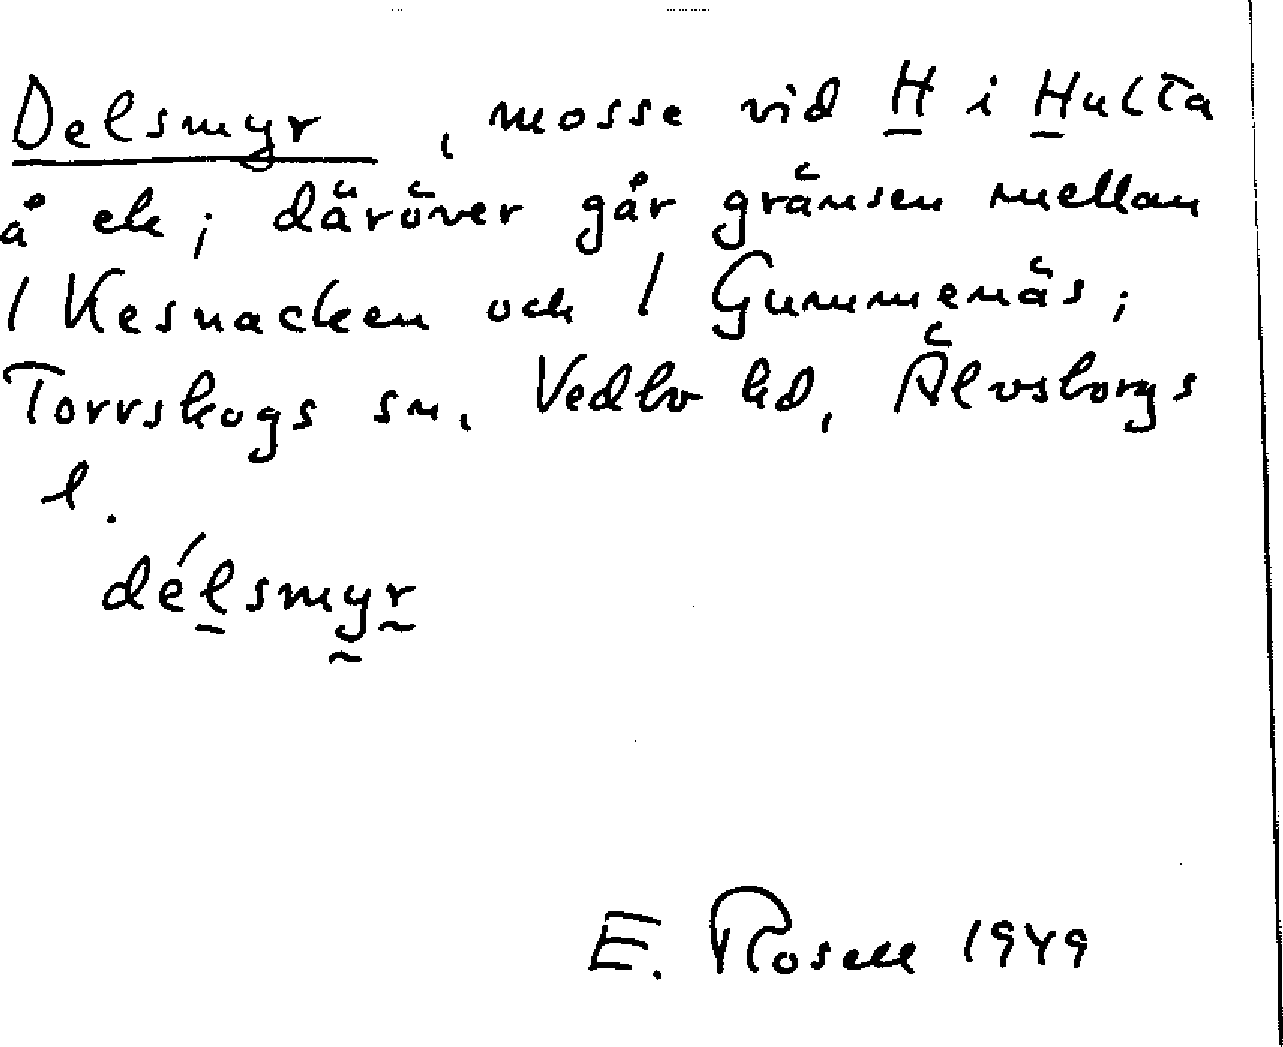 Delsmyr, mosse vid H i Hulta
å ek; däröver går gränsen mellan
1 Kesnacken och 1 Gummenäs;
Torrskogs sn, Vedbo hd, Älvsborgs
l.
délsmyr
E. Rosell 1949